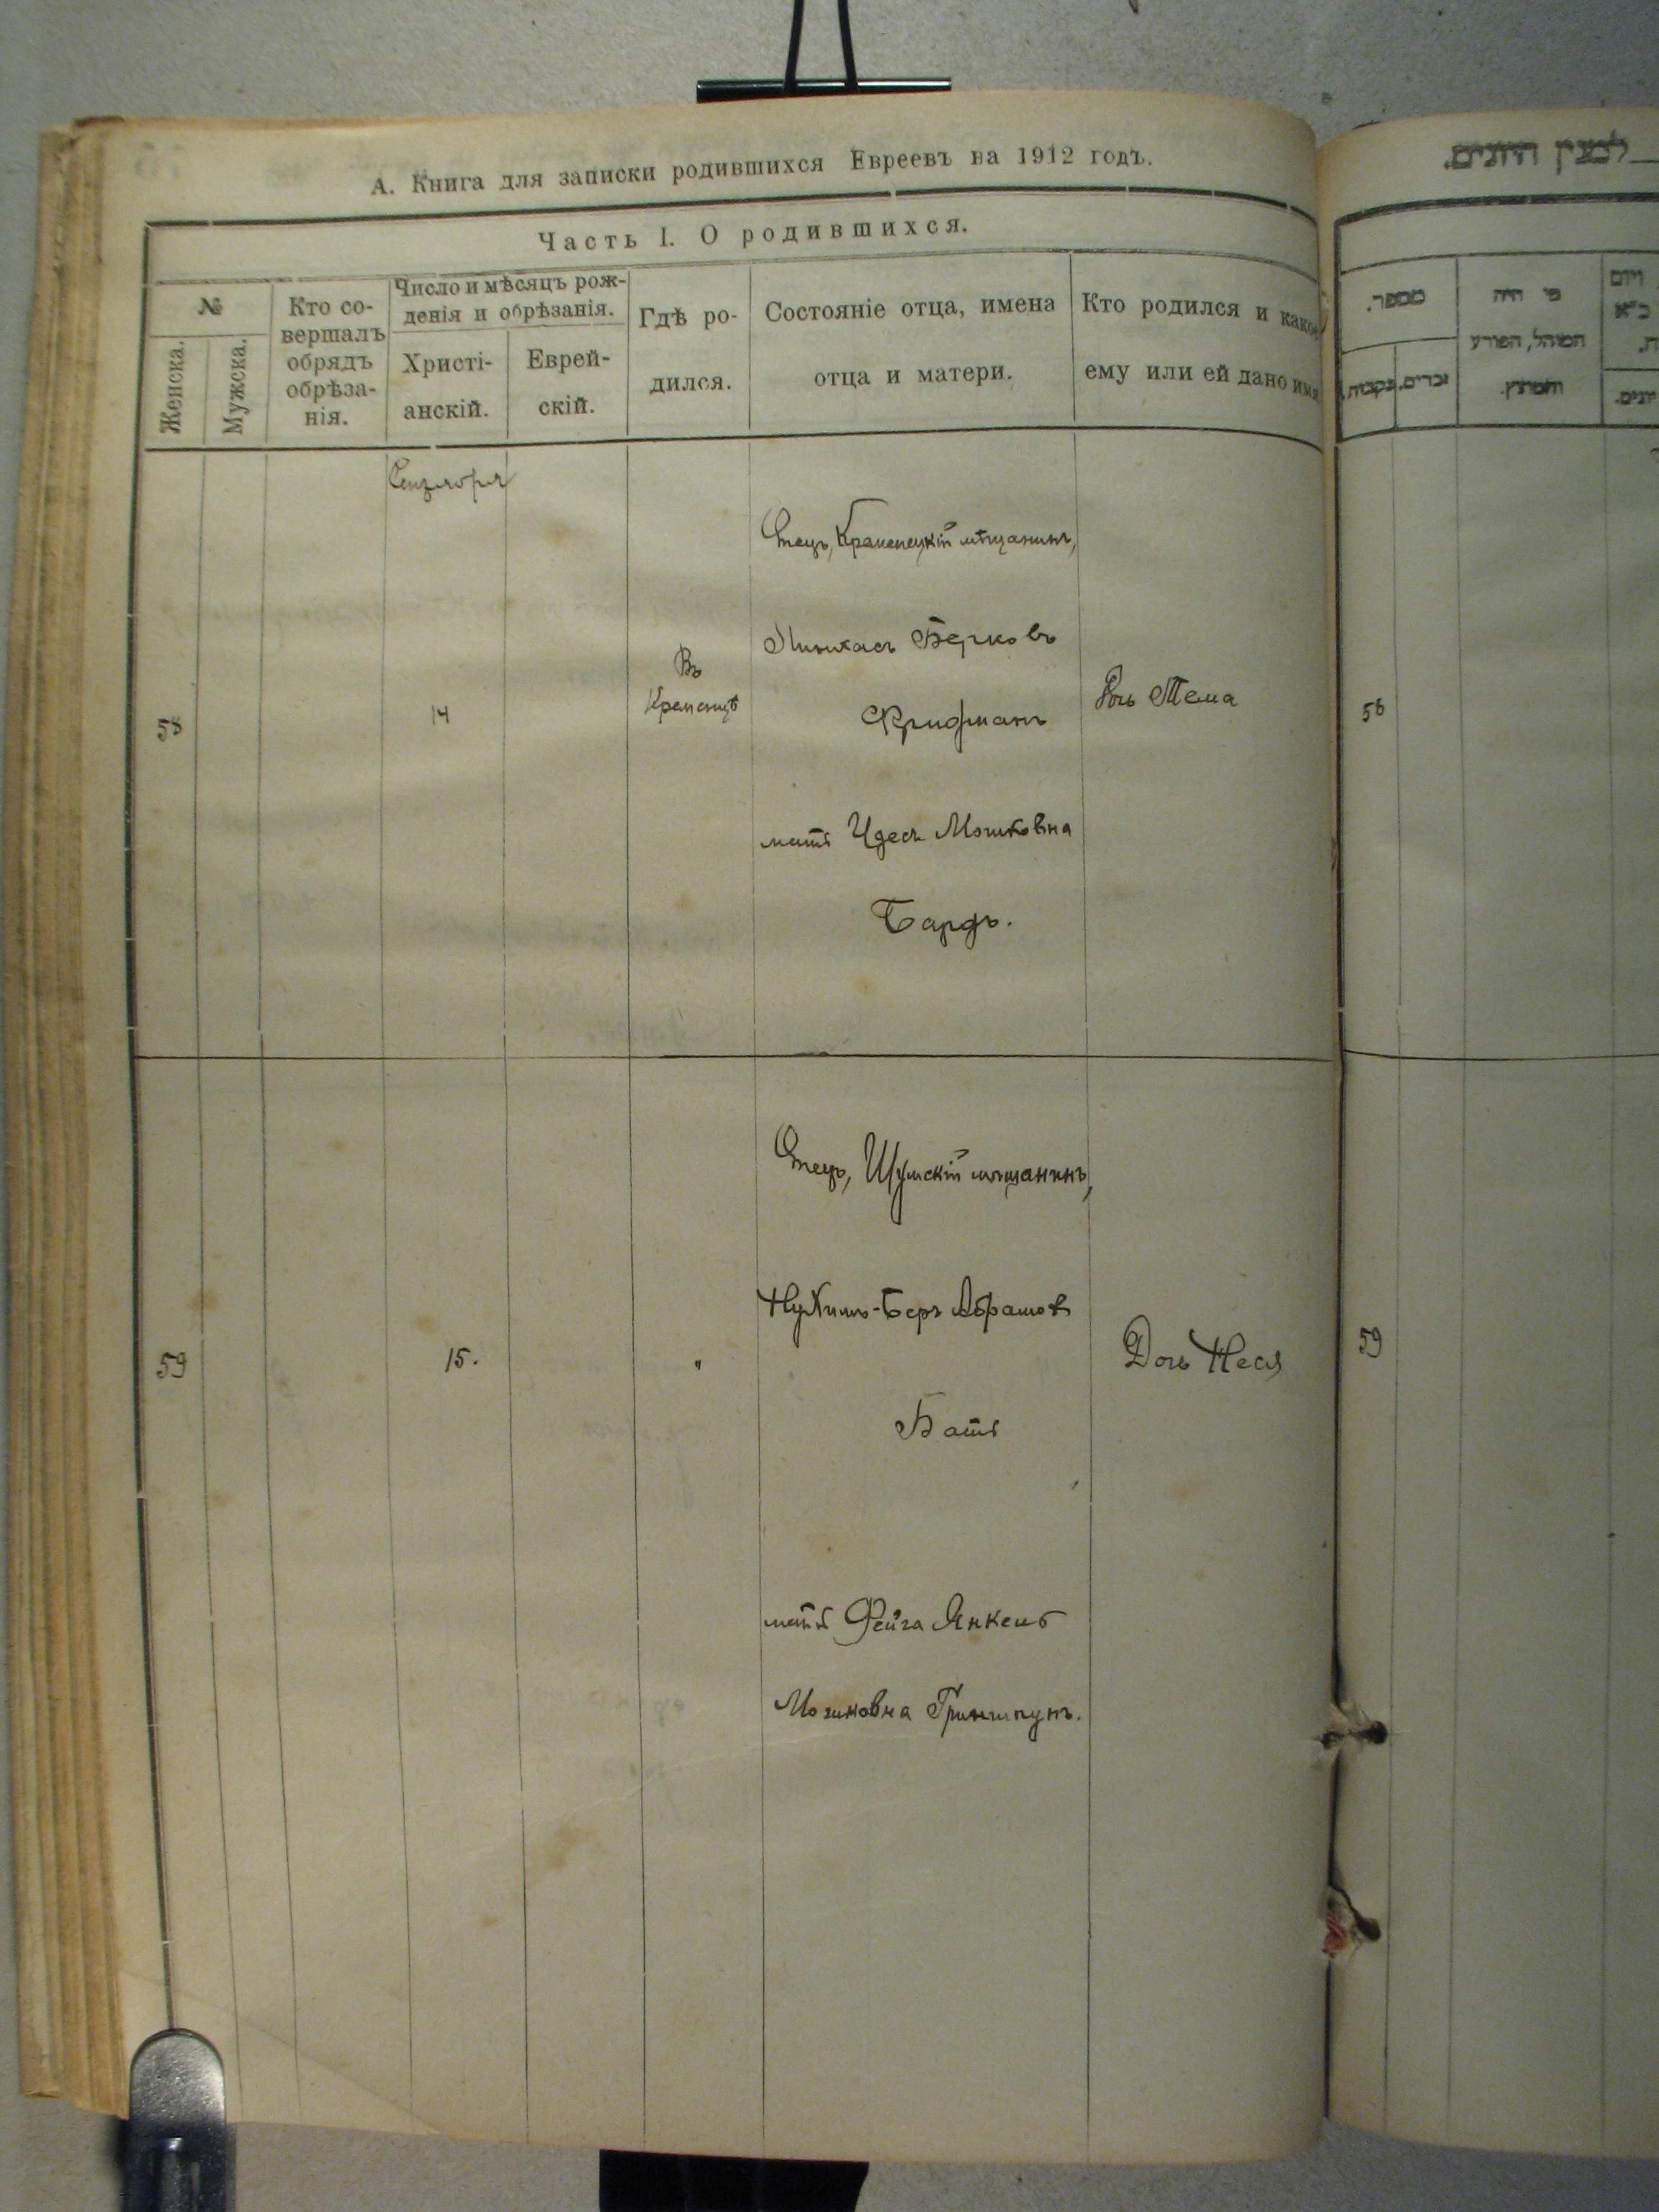 А. Книга для записки родившихся Евреевъ на 1912 годъ.
Часть I. О родившихся.
№
Женска.
Мужска.
Кто со-
вершалъ
обрядъ
обрѣза-
нія.
Число и мѣсяцъ рож-
денія и обрѣзанія.
Христі-
анскій.
Еврей-
скій.
Гдѣ ро-
дился.
Состояніе отца, имена
отца и матери.
Кто родился и какое
ему или ей дано имя
58
14
Въ
Кременцѣ
Отецъ, Кременецкій мѣщанинъ,
Пинхасъ Берковъ
мать Идесъ Мошковна
Бардъ.
Дочь Тема
59
15.
"
Отецъ, Шумскій мѣщанинъ,
Нухимъ-Беръ Абрамов
Бать
мать Фейга Янкель
Мошковна Гриншпунъ.
Дочь Неся
לכצין היונים.
מספר.
זכרים.
נקבות.
מי היה
המוהל, הפורע
והמוצץ.
58
59